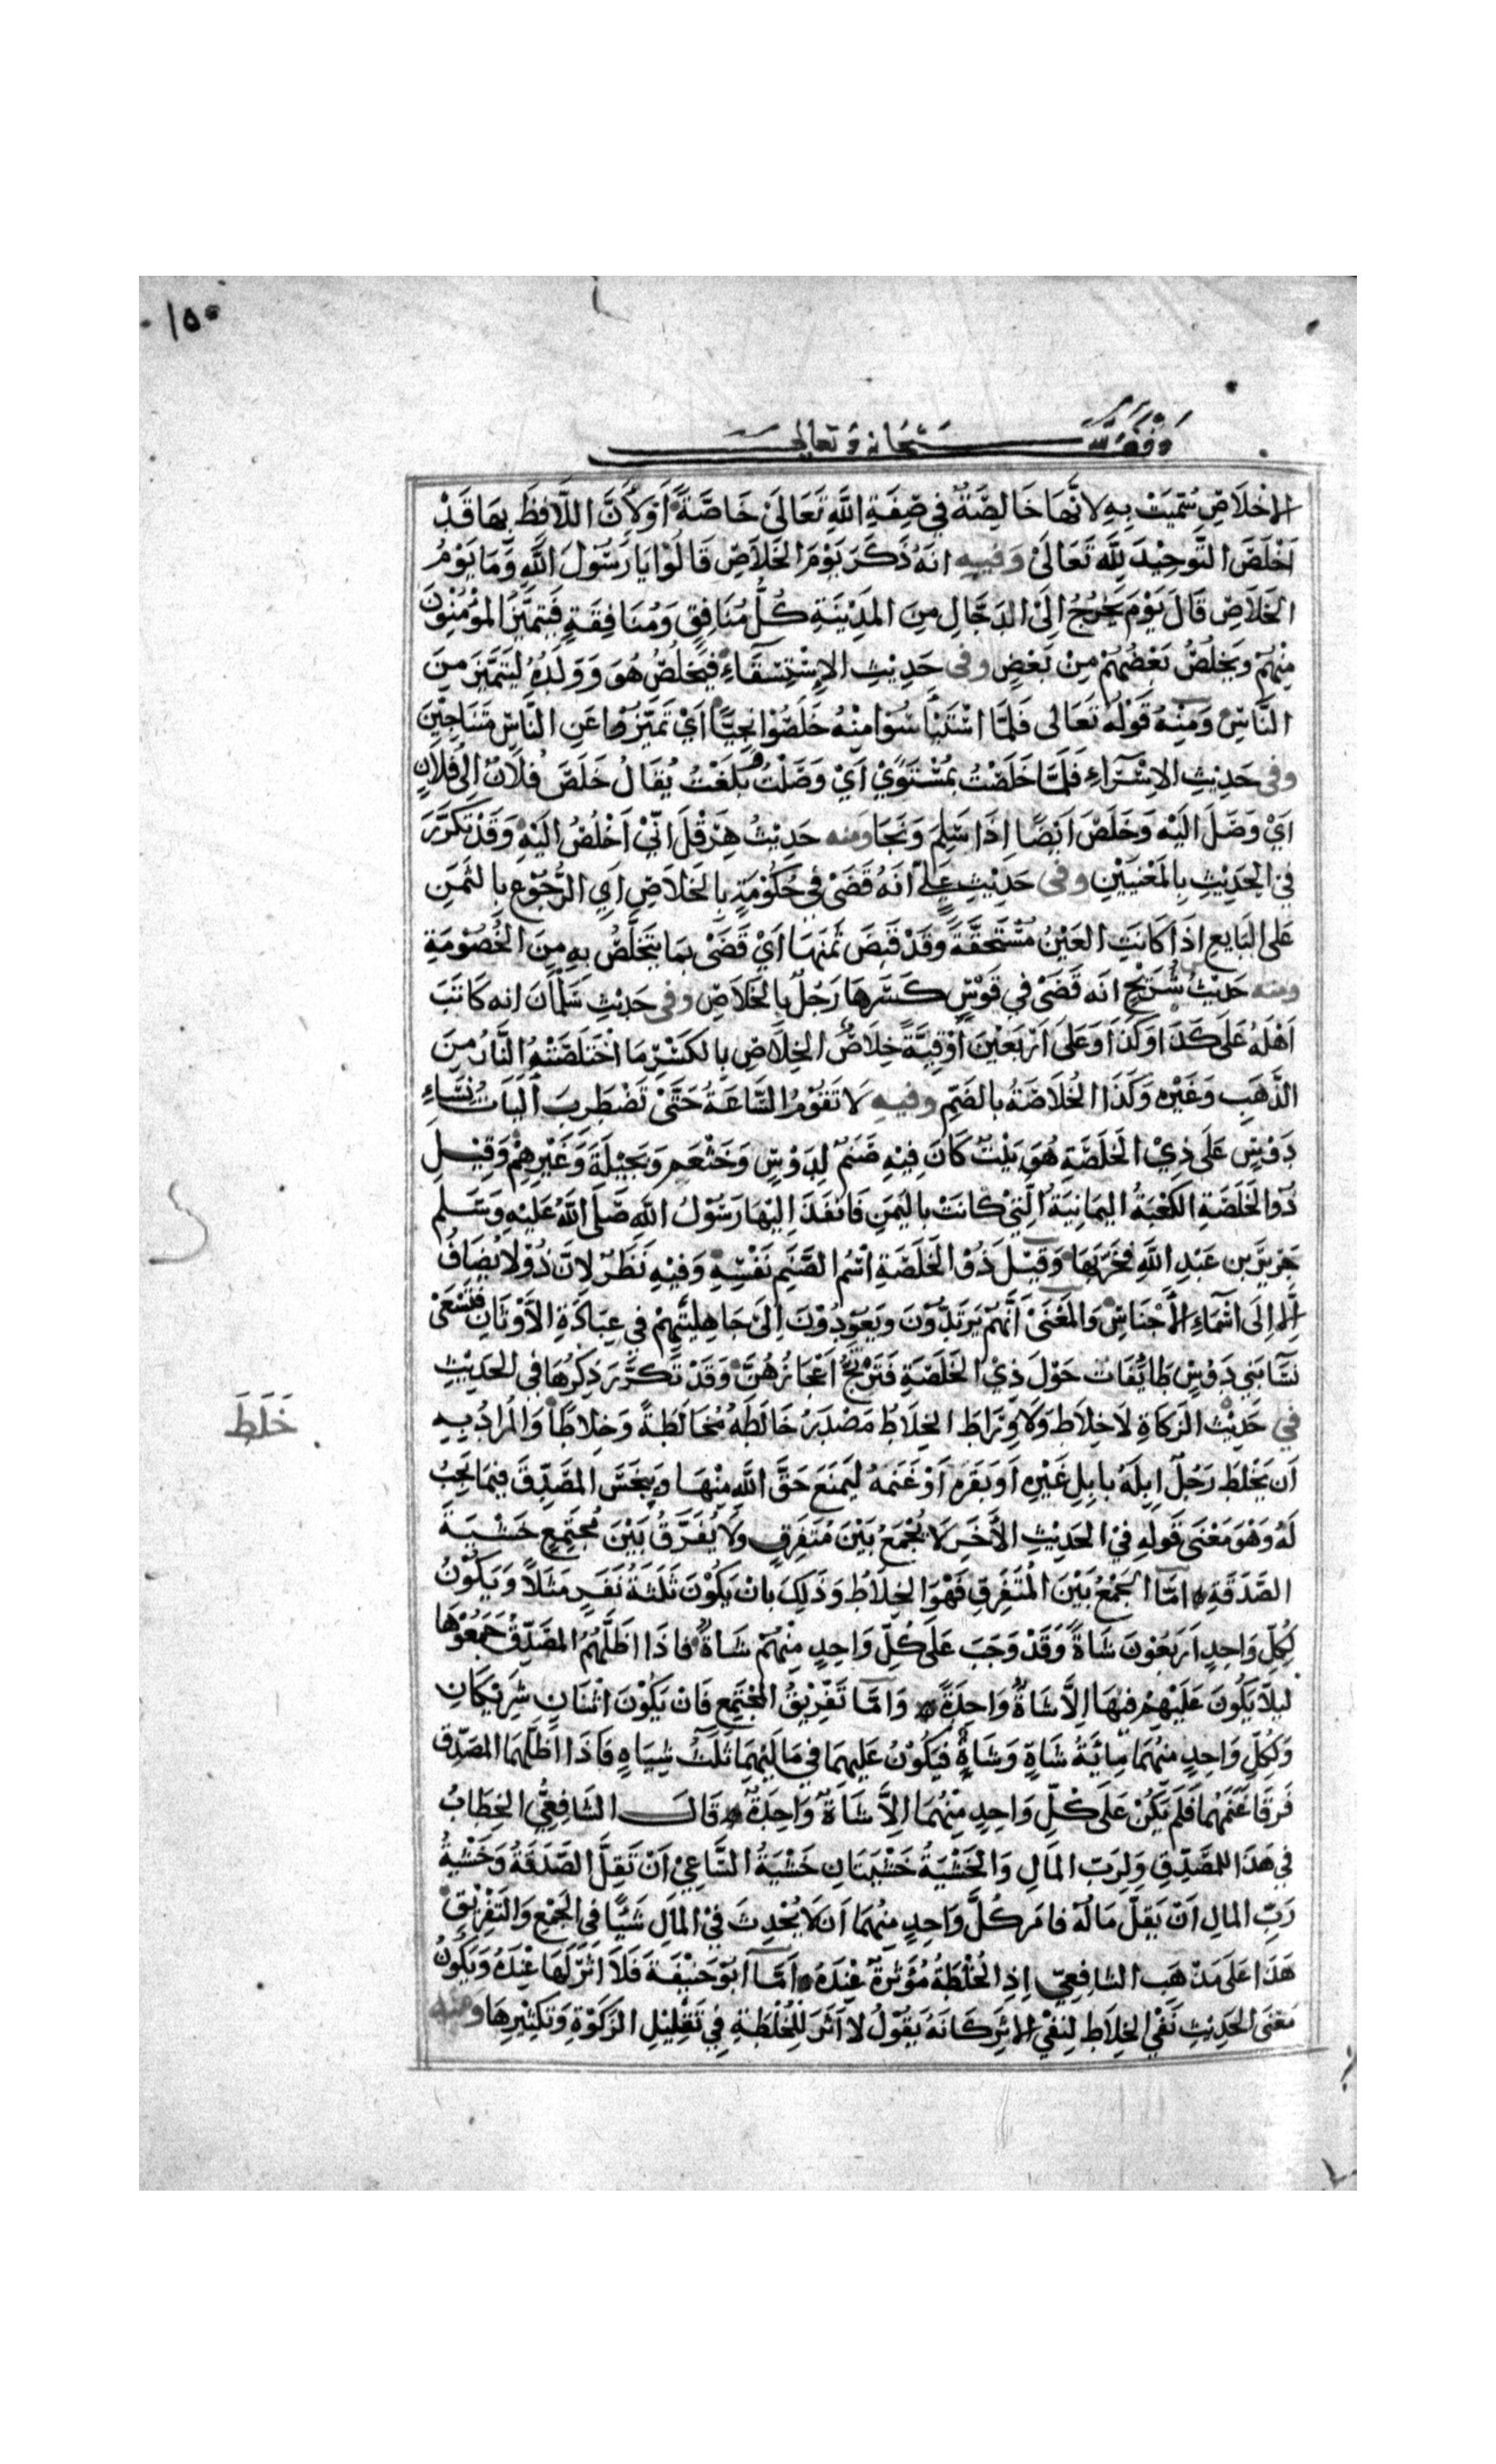 ١٥٠
وقف لله سبحانه وتعالى
الإخلاصِ سُمِّيَتْ بِهِ لِأَنَّهَا خَالِصَةٌ فِي صِفَةِ اللَّهِ تَعَالَىٰ خَاصَّةً أَوْ لِأَنَّ اللَّافِظَ بِهَا قَدْ
أَخْلَصَ التَّوحِيْدَ لِلَّهِ تَعَالَىٰ وَفِيهِ انَهُ ذَكَرَ يَوْمَ الخَلَاصِ قَالُوْا يَا رَسُوْلَ اللَّهِ وَمَا يَوْمُ
الخَلَاصِ قَالَ يَوْمَ يَخْرُجُ إِلَىٰ الدَجَّالِ مِنَ المَدِيْنَةِ كُلُّ مُنَافِقٍ وَمُنَافِقَةٍ فَيَتَمَيَّزُ المُؤْمِنُوْنَ
مِنْهُمْ وَيَخْلُصُ بَعْضُهُمْ مِنْ بَعْضٍ وفى حَدِيْثِ الإِسْتِسْقَاءِ فَيَخْلُصُ هُوَ وَوَلَدُهُ لِيَتَمَيَّزَ مِنَ
النَّاسِ وَمِنْهُ قَوْلُهُ تَعَالى فَلَمَّا اسْتَيْأَسُوْا مِنْهُ خَلَصُوْا نَجِيًّا أَيْ تَمَيَّزُوْا عَنِ النَّاسِ مُتَنَاجِيْنَ
وفى حَدِيْثِ الإِسْرَاءِ فَلَمَّا خَلَصْتُ بِمُسْتَوًى أَيْ وَصَلْتُ وبَلَغْتُ يُقَالُ خَلَصَ فُلَانٌ إِلَى فُلَانٍ
ايْ وَصَلَ الَيْهِ وَخَلَصَ ايْضًا إِذَا سَلِمَ وَنَجَا وَمنه حَدِيْثُ هِرَقْلَ انّيْ اَخْلُصُ الَيْهِ وَقَدْ تَكَرَّرَ
فِي الحَدِيْثِ بِالمَعْنَيَيْنِ وفى حَدِيْثِ عَلِيٍّ انَهُ قَضَى فِيْ حُكُوْمَةٍ بِالخَلَاصِ اَيِ الرُّجُوْعِ بِالثَمَنِ
عَلى البَايعِ إِذَا كَانَتِ العَيْنُ مُسْتَحَقَّةً وَقَدْ قَبَضَ ثَمَنَهَا أَيْ قَضَىْ بمَا يُتَخَلَّصُ بِهِ مِنَ الخُصُوْمَةِ
ومنه حَدِيْثُ شُرَيْحٍ انَه قَضَىْ فِي قَوْسٍ كَسَرَهَا رَجُلٌ بِالخَلَاصِ وفى حَدِيْثِ سَلْمَانَ انه كَاتَبَ
اَهْلَهُ عَلَى كَذَا وَكَذَا وَعَلَى أَرْبَعْيْنَ أُوْقِيَّةَ خِلَاصٍ الخِلَاصِ بالكَسْرِ مَا اخْتَلَصَتْهُ النَّارُ مِنَ
الذَّهَبِ وَغَيْرِهِ وَكَذَا الخُلَاصَةُ بالضَمِّ وفيهِ لَا تَقُوْمُ السَّاعَةُ حَتَّىْ تَضْطَرِبَ أَلَيَاتُ نِسَاءِ
دَوْسٍ عَلَى ذِيْ الخَلَصَةِ هُوَ بَيْتٌ كَانَ فِيْهِ صَنَمٌ لِدَوْسٍ وَخَثْعَمٍ وَبَجِيْلَةَ وَغَيْرِهِمْ وَقِيْلَ
ذُوْ الخَلَصَةِ الكَعْبَةُ اليَمَانِيَةُ الَّتِيْ كَانَتْ بِاليَمَنِ فَانفَذَ إِلَيْهَا رَسُوْلُ اللَّهِ صَلَّى اللَّهُ عَلَيْهِ وَسَلَّم
جَرِيْرَ بن عَبْدِ اللَّهِ فخَرَّبَهَا وَقِيْلَ ذُوْ الخَلَصَةِ اسْمُ الصَّنَمِ نَفْسِهِ وَفِيْهِ نَظَرٌ لِانَّ ذُوْ لَا يُضَافُ
إِلَّا إِلَى أَسْمَاءِ الأَجْنَاسِ وَالمَعْنَىْ أَنَّهُمْ يَرْتَدُّوْنَ وَيَعُوْدُوْنَ إِلَىْ جَاهِليَّتِهِمْ فِي عِبَادَةِ الأَوْثَانِ فَتَسْعَىْ
نسَآ بَنِي دَوْسٍ طَائِفَاتٍ حَوْلَ ذِيْ الخَلَصَةِ فَتَرْتَجُّ أَعْجَازُهُنَّ وَقَدْ تَكَرَّرَ ذِكْرُهَا فى الحَدِيْثِ
فِي حَدِيْثِ الزَكَاةِ لَا خِلَاطَ وَلَا وِرَاطَ الخِلَاطُ مَصْدَرُ خَالَطَهُ مُخَالَطَةً وَخِلَاطًا وَالمُرَادُ بِهِ
خَلَطَ
أَن يَخْلِطَ رَجُلٌ إِبِلَهُ بِابِلِ غَيْرِهِ اَوْ بَقَرَهُ أَوْ غَنَمَهُ لِيَمنَعَ حَقَّ اللَّهِ مِنْهَا وَيبخَسَ المصَدِّقَ فيمَا يَجِبُ
لَهُ وَهْوَ مَعْنَى قَولِهِ فِيْ الحَدِيْثِ الأخَرِ لَا يُجْمَعُ بَيْنَ مُتَفَرِقٍ وَلَا يُفَرَّقُ بَيْنَ مُجتَمِعٍ خَشْيَةَ
الصَّدَقَةِ امَّا الجَمْعُ بَيْنَ المُتَفَرِقِ فَهْوَ الخِلَاطُ وَذَلِكَ بانْ يَكُوْنَ ثَلثَةُ نَفَرٍ مَثَلًا وَيَكُوْنُ
لِكُلِّ وَاحِدٍ أَرْبَعُونَ شَاةً وَقَدْ وَجَبَ عَلَى كُلِّ وَاحِدٍ مِنْهُمْ شَاةٌ فَاذَا اظَلَّهُمُ المصَدِّقُ جَمَعُوْهَا
لِيلَّا يَكُونَ عَلَيْهِمْ فيهَا إِلَّا شَاةٌ وَاحِدَةٌ وَامَّا تَفْرِيْقُ المجْتَمِعِ فَانْ يَكُوْنَ اثْنَانِ شَرِيْكَانِ
وَلِكُلِّ وَاحِدٍ مِنْهُمَا مِائَةُ شَاةٍ وَشَاةٌ فَيَكُوْنُ عَلَيهِمَا فِي مَالَيْهِمَا ثَلَاثُ شِيَاهٍ فَاذَا اظَلَّهُمَا المصَدِّقُ
فَرقَا غَنَمَهُمَا فَلَم يَكُنْ عَلَى كُلِّ وَاحِدٍ مِنْهُمَا إِلَّا شَاةٌ وَاحِدَةٌ قَالَ الشَافِعِيُّ الخِطَابُ
فِي هَذَا للمصَدِّقِ وَلِرَبِّ المَالِ وَالخَشْيَةُ خَشْيَتَانِ خَشْيَةُ السَّاعِيْ اَنْ تَقِلَّ الصَّدَقَةُ وَخَشْيَةُ
رَبِّ المالِ اَنْ يَقلَّ مَالُهُ فامَرَ كُلَّ وَاحِدٍ مِنهُمَا اَن لَا يُحْدِثَ فِيْ المَالِ شَيْئًا فِي الجَمْعِ وَالتَفْرِيْقِ
هَذَا عَلَى مَذْهَبِ الشَافِعِيِّ إِذِ الخُلْطَةُ مُؤَثِرَةٌ عِنْدَهُ أَمَّا أَبُوْ حَنِيْفَةَ فَلَا اثَرَ لَهَا عِنْدَهُ وَيَكُوْنُ
مَعْنَى الحَدِيْثِ نَفْيَ الخِلَاطِ لِنَفْيِ الاثَرِ كَانَهُ يَقُوْلُ لَا أَثَرَ لِلْخُلْطَةِ فِيْ تَقْلِيْلِ الزَكَوٰةِ وَتَكْثِيْرِهَا وَمنه